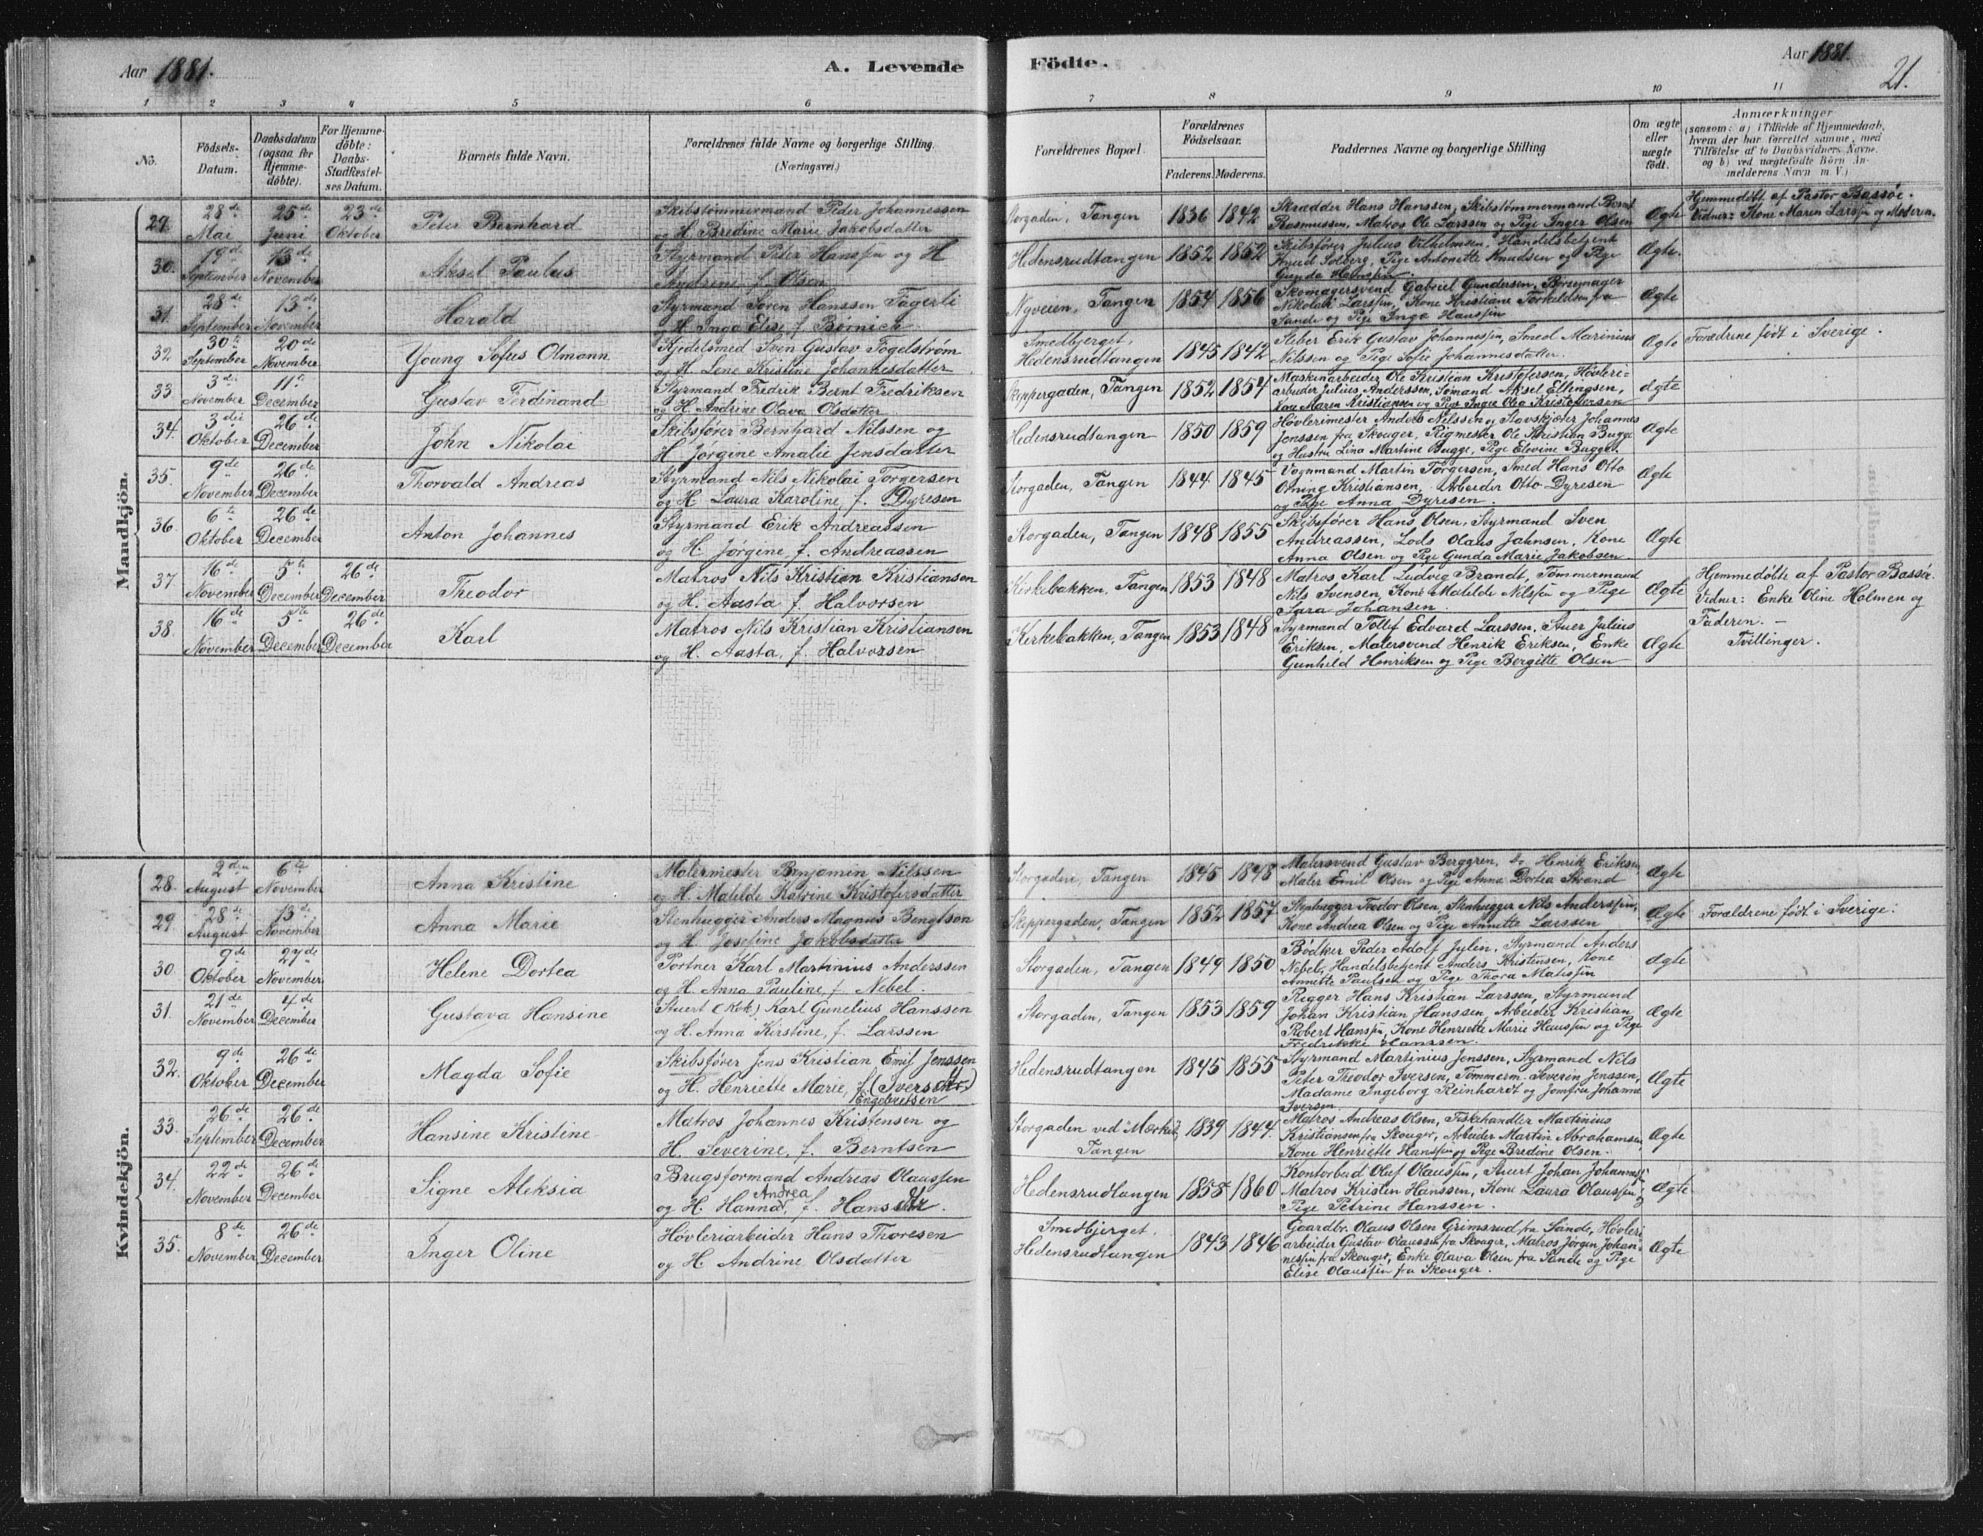 Aar 1881.
A. Levende
Födte.
Aar 1881.
21.
1 2 3 4 5 6 7 8 9 10 11
No.
Födsels-Datum.
Daabsdatum (ogsaa for Hjemme-döbte).
For Hjemme-döbte: Daabs-Stadfæstelses Datum.
Barnets fulde Navn.
Forældrenes fulde Navne og borgerlige Stilling. (Næringsvei.)
Forældrenes Bopæl.
Forældrenes Födselsaar.
Faderens. Moderens.
Faddernes Navne og borgerlige Stilling
Om ægte eller uægte födt.
Anmærkninger
(saasom: a) i Tilfælde af Hjemmedaab, hvem der har forrettet samme, med Tilföielse af to Daabsvidners Navne, og b) ved uægtefödte Börn Anmelderens Navn m. V.)
Mandkjön.
29. 28de Mai 25de Juni 23de Oktober Peter Bernhard
Skibstømmermand Peder Johannessen
og H. Bredine Marie Jakobsdatter
Storgaden, Tangen 1836 1842
Skrædder Hans Hanssen, Skibstømmermand Bernt
Rasmussen, Matros Ole Larssen og Pige Inger Olsen
Ægte
Hjemmedøbt af Pastor Bassøe.
Vidner: Kone Maren Larssen og Moderen.
30. 19de September 13de November Aksel Paulus
Styrmand Peter Hanssen og H
Andrine f. Olsen
Hedensrudtangen 1852 1852
Skibsfører Julius Vilhelmsen, Handelsbetjent
Knud Solberg, Pige Antonette Knudsen og Pige
Gunda Hanssen.
Ægte.
31. 28de September 13de November Harald
Styrmand Søren Hanssen Fagerli
H. Inga Elise f. Børnick
Nyveien, Tangen 1854 1856
Skomagersvend Gabriel Gundersen, Børsemager
Nikolai Larssen, Kone Kristiane Torkeldsen fra
Sande og Pige Inga Hanssen
Ægte
32 30te September 20de November Young Sofus Olmann
Kjedelsmed Sven Gustav Fogelstrøm
og H. Lene Kristine Johannesdatter
Smedbjerget, Hedensrudtangen 1845 1842
Støber Erik Gustav Johannessen, Smed Marinius
Nilssen og Pige Sofie Johannesdatter.
Ægte Forældrene født i Sverige.
33 3die November 11te December Gustav Ferdinand
Styrmand Fredrik Bernt Fredriksen
og H. Andrine Olava Olsdatter
Skippergaden, Tangen 1852 1854
Maskinarbeider Ole Kristian Kristofersen, Høvleri-
arbeider Julius Anderssen, Sømand Aksel Ellingsen,
Kone Maren Kristiansen og Pige Inger Olea Kristofersen
Ægte
34. 3die Oktober 26de December John Nikolai
Skibsfører Bernhard Nilssen og
H. Jørgine Amalie Jensdatter
Hedensrudtangen 1850 1859
Høvlerimester Anders Nilssen og Stavskjører Johannes
Jenssen fra Skouger, Rigmester Ole Kristian Bugge
og Hustru Lina Martine Bugge, Pige Elevine Bugge.
Ægte
35. 9de November 26de December Thorvald Andreas
Styrmand Nils Nikolai Torgersen
og H. Laura Karoline f. Dyresen
Storgaden, Tangen 1844 1845
Vognmand Martin Torgersen, Smed Hans Otto
Orning Kristiansen, Arbeider Otto Dyresen
og Pige Anna Dyresen.
Ægte
36. 6te Oktober 26de December Anton Johannes
Styrmand Erik Andreassen
og H. Jørgine f. Andreassen
Storgaden, Tangen 1848 1855
Skibsfører Hans Olsen, Styrmand Sven
Andreassen, Lods Olaus Jahnsen, Kone
Anna Olsen og Pige Gunda Marie Jakobsen.
Ægte
37 16de November 5te December 26de December Theodor
Matros Nils Kristian Kristiansen
og H. Aasta f. Halvorsen
Kirkebakken, Tangen 1853 1848
Matros Karl Ludvig Brandt, Tømmermand
Nils Svensen, Kone Matilde Nilssen og Pige
Sara Johansen.
Ægte
Hjemmedøbte af Pastor Bassøe.
Vidner: Enke Oline Holmen og
Faderen. —
Tvillinger.
38. 16de November 5te December 26de December Karl
Matros Nils Kristian Kristiansen
og H. Aasta, f. Halvorsen
Kirkebakken, Tangen 1853 1848
Styrmand Tollef Edvard Larssen, Stuer Julius
Eriksen, Malersvend Henrik Eriksen, Enke
Gunhild Henriksen og Pige Bergitte Olsen
Ægte
Kvindekjön.
28. 2den August 6te November Anna Kristine
Malermester Benjamin Nilssen
og H. Matilde Katrine Kristofersdatter
Storgaden, Tangen 1845 1848
Malersvend Gustav Berggren, do Henrik Eriksen
Maler Emil Olsen og Pige Anna Dortea Strand
Ægte
29. 28de August 13de November Anna Marie
Stenhugger Anders Magnus Bengtson
og H. Josefine Jakobsdatter
Skippergaden, Tangen 1852 1857
Stenhugger Teodor Olsen, Stenhugger Nils Anderssen,
Kone Andrea Olsen og Pige Annette Larssen
Ægte Forældrene født i Sverige.
30. 9de Oktober 27de November Helene Dortea
Portner Karl Martinius Anderssen
og H. Anna Pauline, f. Nebel.
Storgaden, Tangen 1849 1850
Bødker Peder Adolf Julin, Styrmand Anders
Nebel, Handelsbetjent Anders Kristensen, Kone
Annette Paulsen og Pige Thora Matissen
Ægte
31. 21de November 4de December Gustava Hansine
Stuert (Kok) Karl Gunelius Hanssen
og H. Anna Kirstine, f. Larssen
Storgaden, Tangen 1853 1859
Rigger Hans Kristian Larssen, Styrmand
Johan Kristian Hanssen, Arbeider Kristian
Robert Hanssen, Kone Henriette Marie Hanssen og Pige
Fredrikke Hanssen.
Ægte
32. 9de Oktober 26de December Magda Sofie
Skibsfører Jens Kristian Emil Jenssen
og H. Henriette Marie, f. (Iversdtr.)
Engebretsen
Hedensrudtangen 1845 1855
Styrmand Martinius Jenssen, Styrmand Nils
Peter Theodor Iversen, Tømmerm. Severin Jenssen,
Madame Ingeborg Reinhardt og Jomfru Johanne
Iversen.
Ægte
33. 26de September 26de December Hansine Kristine
Matros Johannes Kristensen og
H. Severine, f. Berntsen
Storgaden ved Mærket, Tangen 1839 1844.
Matros Andreas Olsen, Fiskehandler Martinius
Kristiansen fra Skouger, Arbeider Martin Abrahamsen,
Kone Henriette Hanssen og Pige Bredine Olsen.
Ægte
34. 22de November 26de December Signe Aleksia
Brugsformand Andreas Olaussen
og H. Hanna Andrea, f. Hansdtr.
Hedensrudtangen 1858 1860
Kontorbud Oluf Olaussen, Stuert Johan Johannessen
Matros Kristen Hanssen, Kone Laura Olaussen og
Pige Petrine Hanssen.
Ægte
35. 8de November 26de December Inger Oline
Høvleriarbeider Hans Thoresen
og H. Andrine Olsdatter
Smedbjerget, Hedensrudtangen 1843 1846
Gaardbr. Olaus Olsen Grimsrud fra Sande, Høvleri-
arbeider Gustav Olaussen fra Skouger, Matros Jørgen Johan-
nessen fra Skouger, Enke Olava Olsen fra Sande og Pige
Elise Olaussen fra Skouger.
Ægte